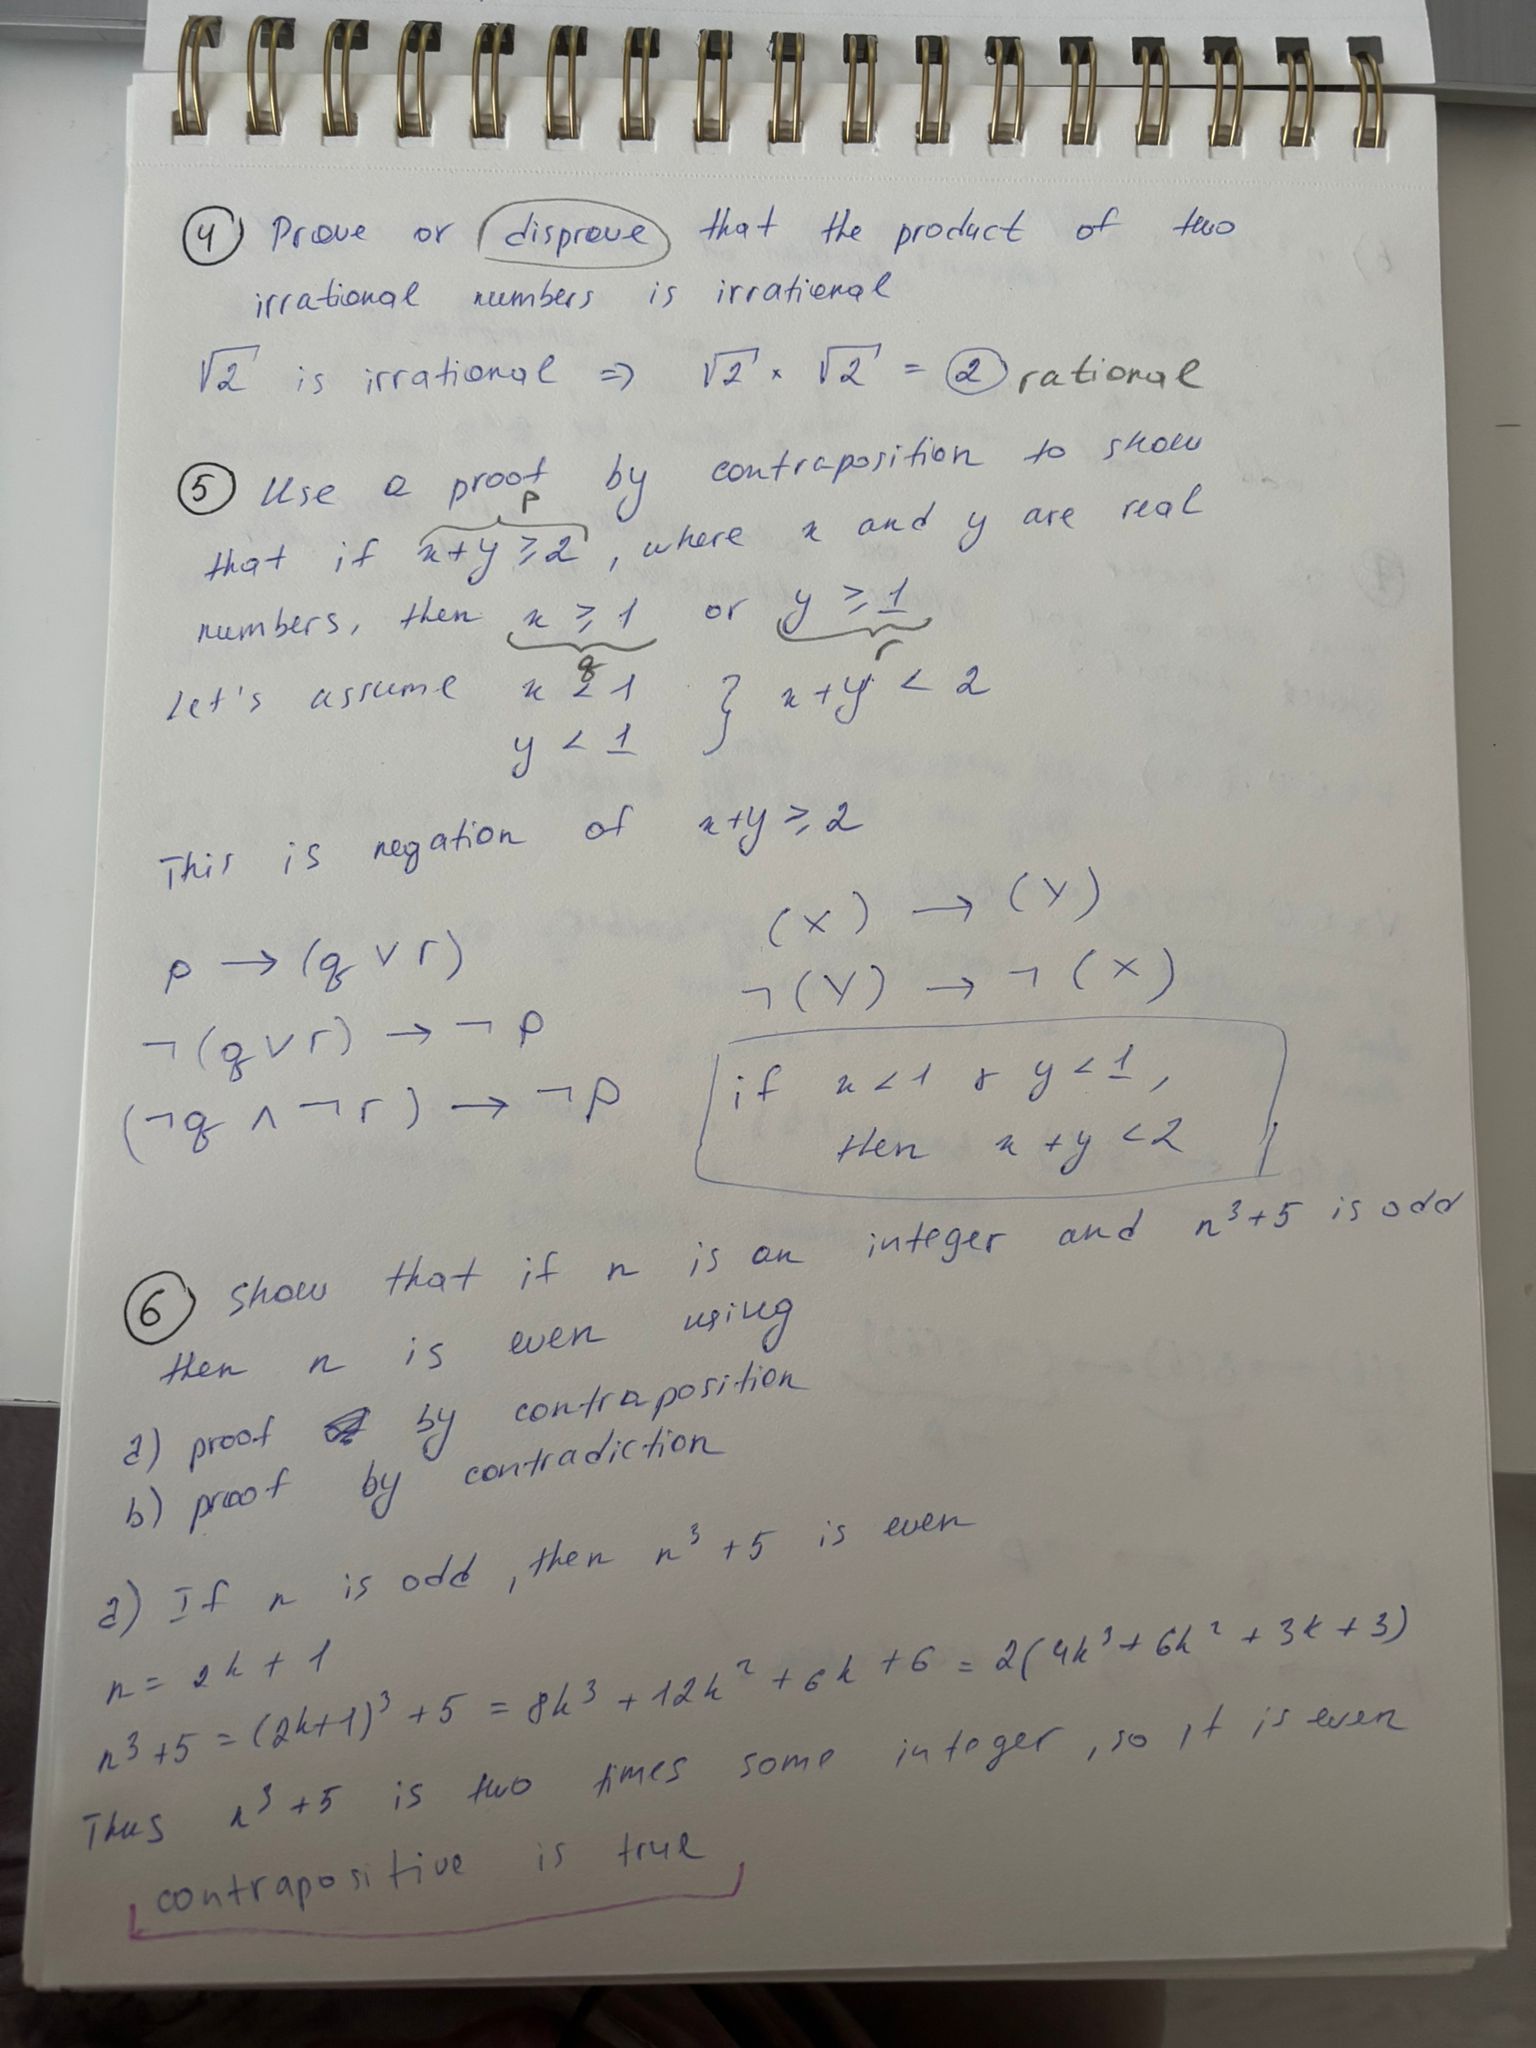 4 Prove or disprove that the product of two
irrational numbers is irrational
√2 is irrational => √2 × √2 = 2 rational
5 Use a proof by contraposition to show
p
that if x+y ≥ 2, where x and y are real
numbers, then x ≥ 1 or y ≥ 1
q r
Let's assume x < 1 } x+y < 2
y < 1
This is negation of x+y ≥ 2
(X) → (Y)
p → (q ∨ r)
¬(Y) → ¬(X)
¬(q ∨ r) → ¬p
if x < 1 & y < 1,
(¬q ∧ ¬r) → ¬p
then x + y < 2
6 Show that if n is an integer and n³+5 is odd
then n is even using
a) proof by contraposition
b) proof by contradiction
a) If n is odd, then n³+5 is even
n = 2k + 1
n³+5 = (2k+1)³ + 5 = 8k³ + 12k² + 6k + 6 = 2(4k³ + 6k² + 3k + 3)
Thus n³+5 is two times some integer, so it is even
contrapositive is true